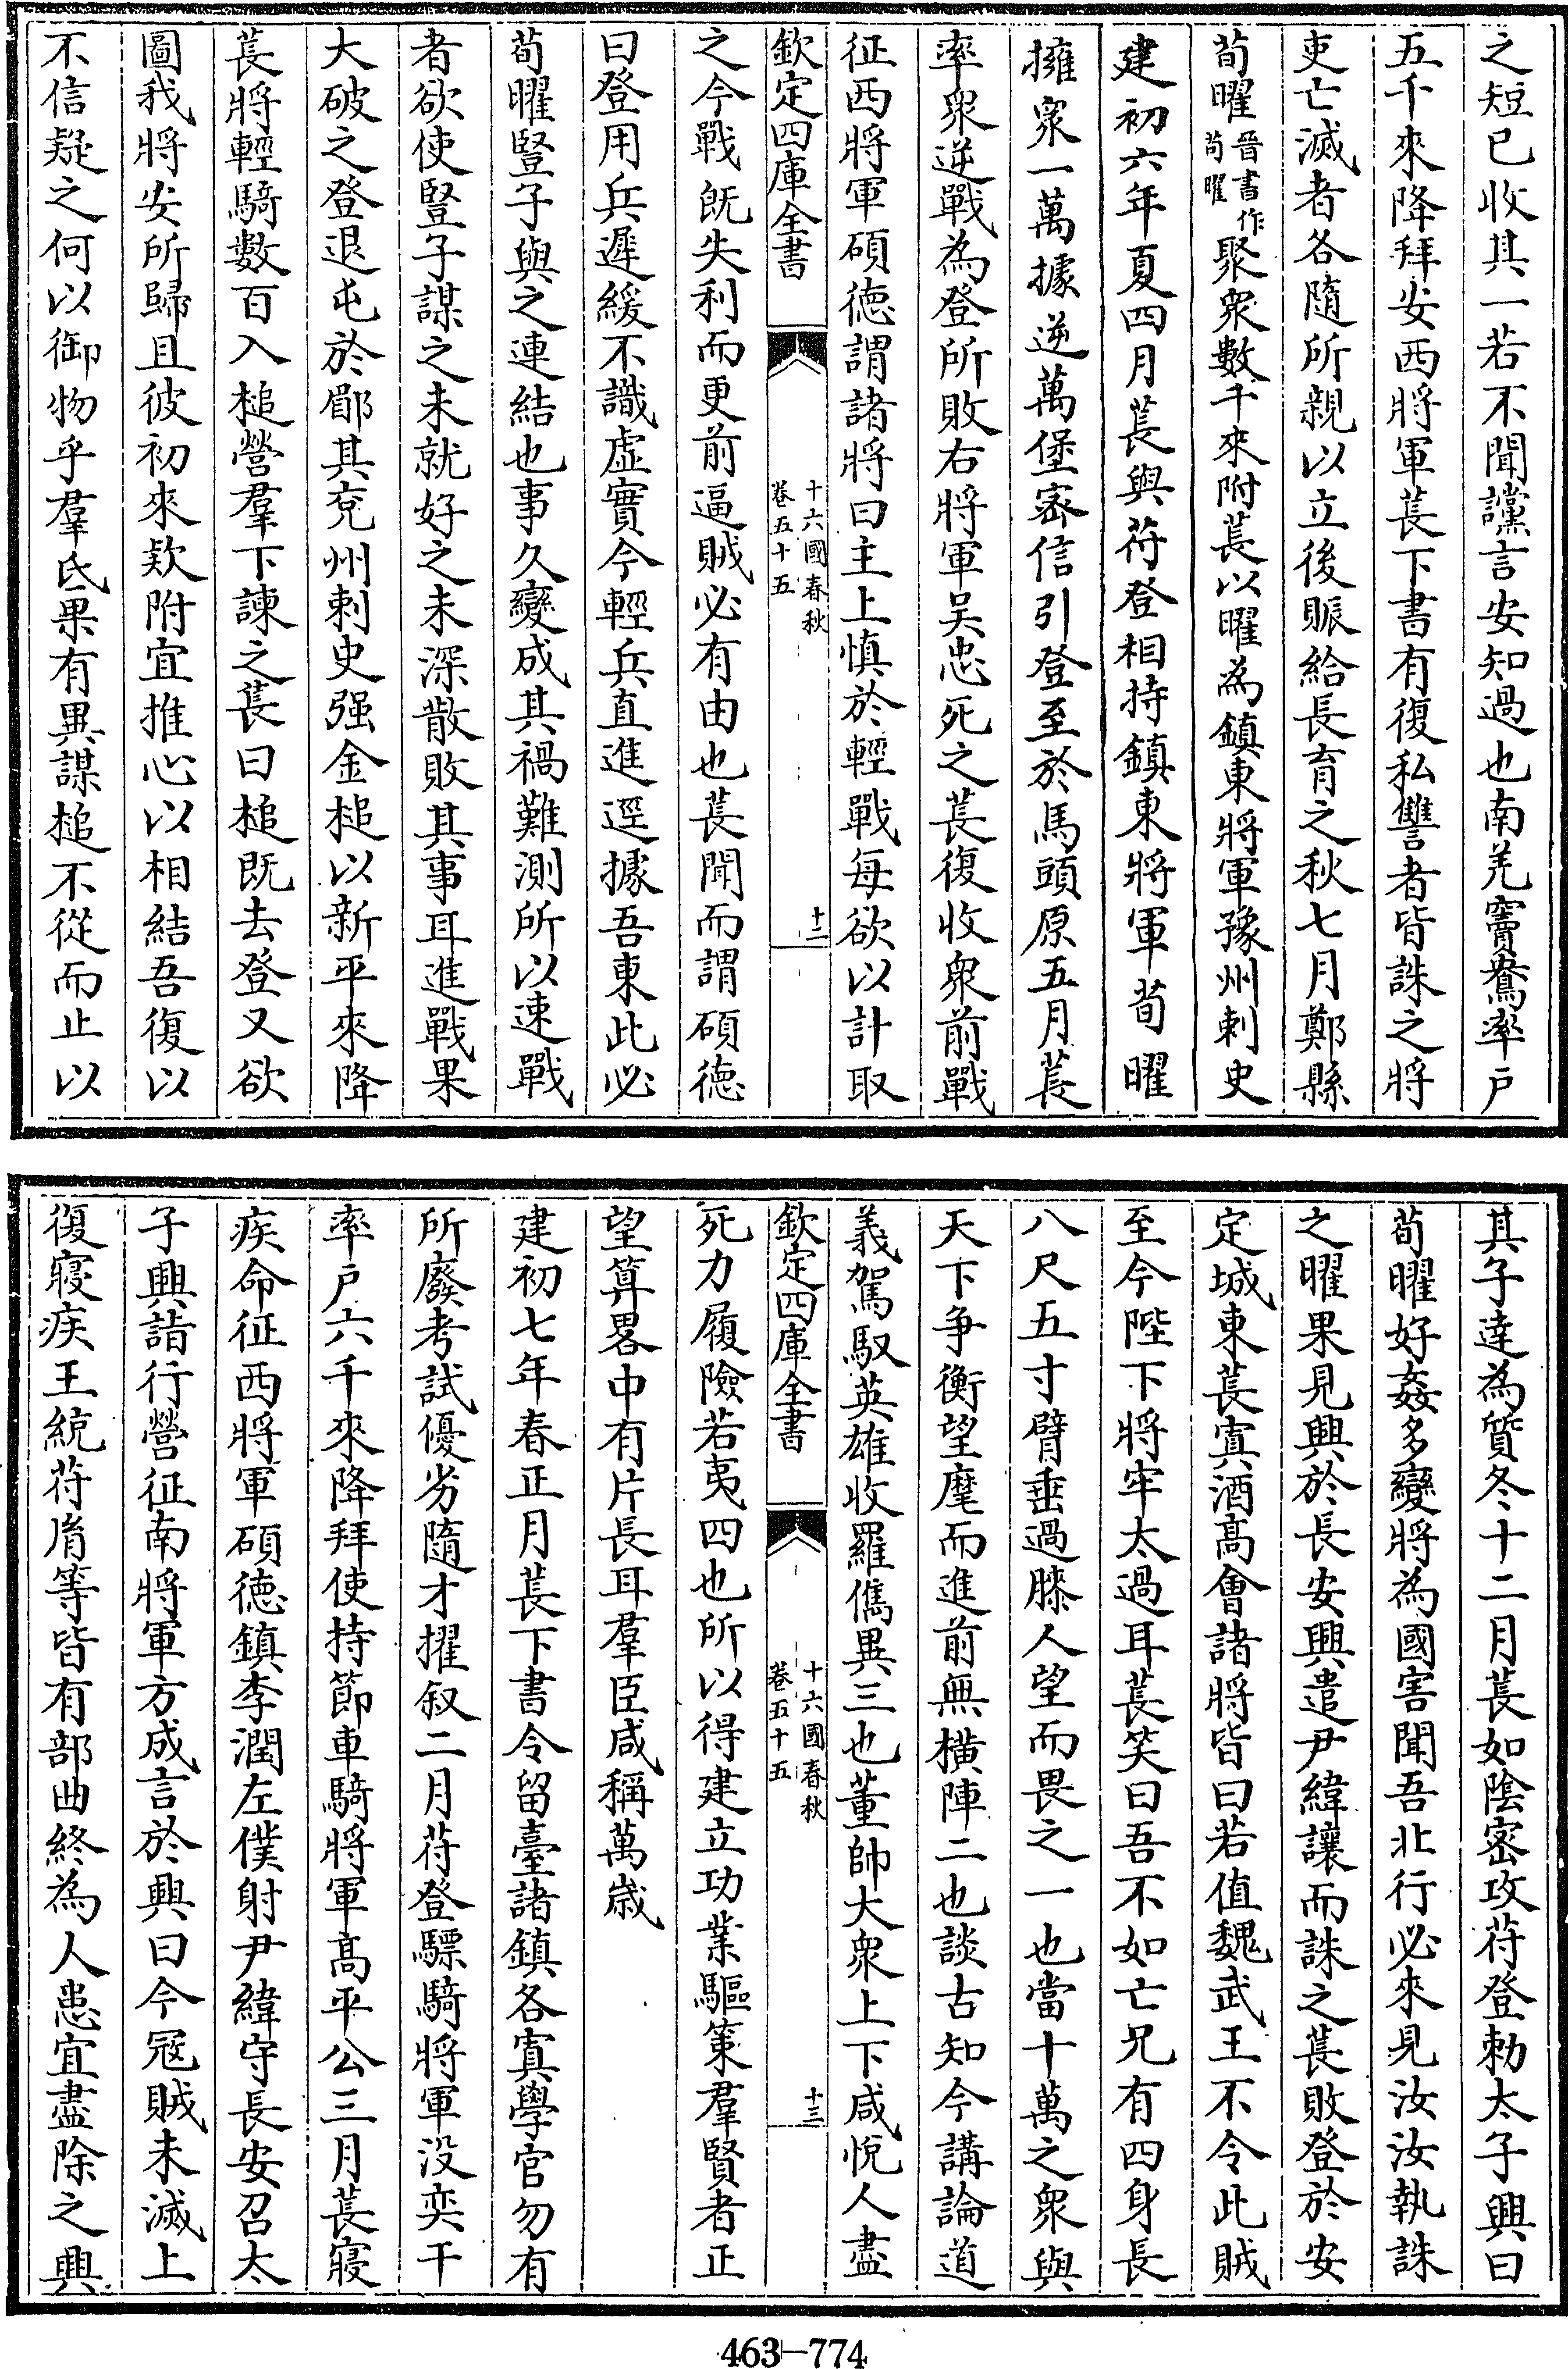 之短已收其一若不聞讜言安知過也南羌竇鴦率戶
五千來降拜安西將軍萇下書有復私讐者皆誅之將
吏亡滅者各隨所親以立後賑給長育之秋七月鄭縣
荀曜晉書作茍曜聚衆數千來附萇以曜為鎮東將軍豫州刺史
建初六年夏四月萇與苻登相持鎮東將軍荀曜
擁衆一萬據逆萬堡密信引登至於馬頭原五月萇
率衆逆戰為登所敗右將軍吳忠死之萇復收衆前戰
征西將軍碩德謂諸將曰主上慎於輕戰每欲以計取
欽定四庫全書
十六國春秋
卷五十五
十二
之今戰既失利而更前逼賊必有由也萇聞而謂碩德
曰登用兵遲緩不識虛實今輕兵直進逕據吾東此必
荀曜豎子與之連結也事久變成其禍難測所以速戰
者欲使豎子謀之未就好之未深散敗其事耳進戰果
大破之登退屯於郿其兗州刺史强金槌以新平來降
萇將輕騎數百入槌營羣下諫之萇曰槌既去登又欲
圖我將安所歸且彼初來款附宜推心以相結吾復以
不信疑之何以御物乎羣氐果有異謀槌不從而止以
其子逹為質冬十二月萇如陰密攻苻登勅太子興曰
荀曜好姦多變將為國害聞吾北行必來見汝汝執誅
之曜果見興於長安興遣尹緯讓而誅之萇敗登於安
定城東萇寘酒髙會諸將皆曰若值魏武王不令此賊
至今陛下將牢太過耳萇笑曰吾不如亡兄有四身長
八尺五寸臂垂過膝人望而畏之一也當十萬之衆與
天下争衡望麾而進前無橫陣二也談古知今講論道
義駕馭英雄收羅儁異三也董帥大衆上下咸悅人盡
欽定四庫全書
十六國春秋
卷五十五
十三
死力履險若夷四也所以得建立功業驅策羣賢者正
望算畧中有片長耳羣臣咸稱萬歲
建初七年春正月萇下書令留臺諸鎮各寘學官勿有
所廢考試優劣隨才擢叙二月苻登驃騎將軍没奕干
率戶六千來降拜使持節車騎將軍髙平公三月萇寢
疾命征西將軍碩德鎮李潤左僕射尹緯守長安召太
子興詣行營征南將軍方成言於興曰今冦賊未滅上
復寢疾王統苻胤等皆有部曲終為人患宜盡除之興
463—774